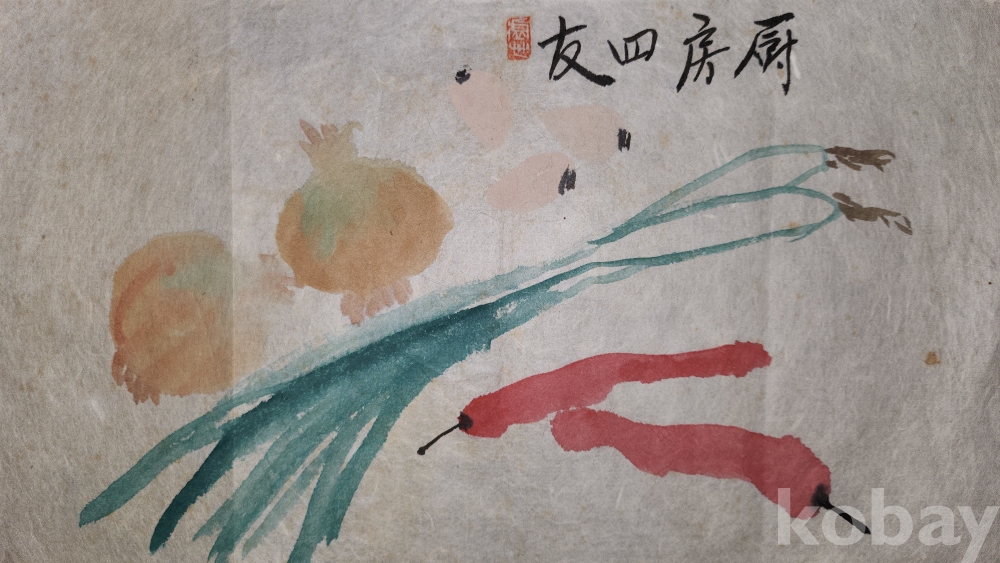 厨房四友
kobay